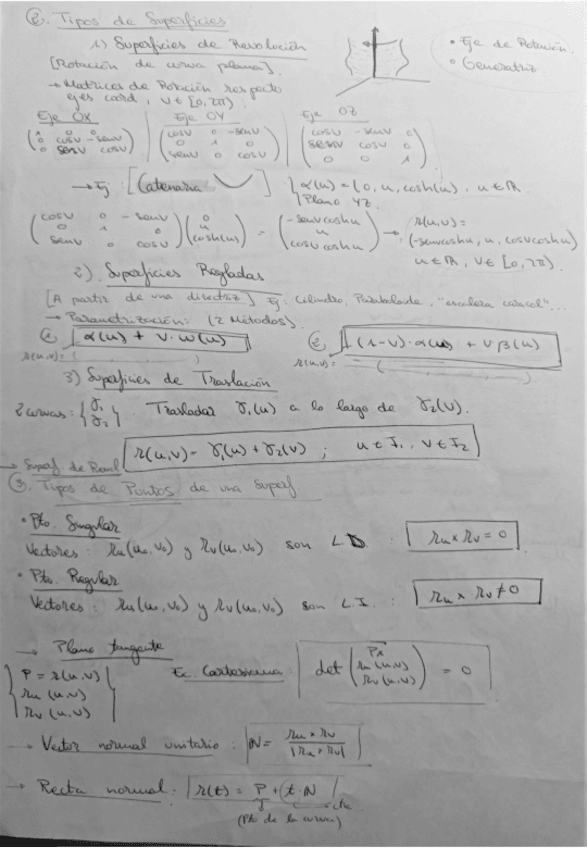 ②. Tipos de Superficies
1) Superficies de Revolución
[Rotación de curva plana].
• Eje de Rotación.
• Generatriz
→ Matrices de Rotación respecto
ejes coord, v ∈ [0, 2π).
Eje OX | Eje OY | Eje OZ
(1 0 0 | (cosv 0 -senv | (cosv -senv 0
0 cosv -senv | 0 1 0 | senv cosv 0
0 senv cosv) | senv 0 cosv) | 0 0 1)
→ Ej: [Catenaria] { α(u) = (0, u, cosh(u)), u ∈ ℝ.
Plano YZ.
(cosv 0 -senv
0 1 0
senv 0 cosv) (0
u
cosh(u)) = (-senv coshu
u
cosv coshu) → r(u,v) =
(-senv coshu, u, cosv coshu)
u ∈ ℝ, v ∈ [0, 2π).
2). Superficies Regladas
[A partir de una directriz] Ej: Cilindro, Paraboloide, "escalera caracol"...
→ Parametrización: (2 Métodos).
① α(u) + v · w(u)
r(u,v) = ( )
② (1-v)·α(u) + v β(u)
r(u,v) = ( )
3) Superficies de Traslación
2 curvas: { γ1 γ2 } . Trasladar γ1(u) a lo largo de γ2(v).
r(u,v) = γ1(u) + γ2(v) ; u ∈ I1, v ∈ I2
→ Superf de
③. Tipos de Puntos de una Superf
• Pto. Singular
Vectores: ru(u0, v0) y rv(u0, v0) son L.D. : ru × rv = 0
• Pto. Regular
Vectores: ru(u0, v0) y rv(u0, v0) son L.I. : ru × rv ≠ 0
→ Plano tangente
{ P = r(u,v)
ru (u,v)
rv (u,v) }
Ec. Cartesiana: det (PX
ru (u,v)
rv (u,v)) = 0
→ Vector normal unitario : N = ru × rv / |ru × rv|
→ Recta normal: r(t) = P + t · N
(Pto de la curva)